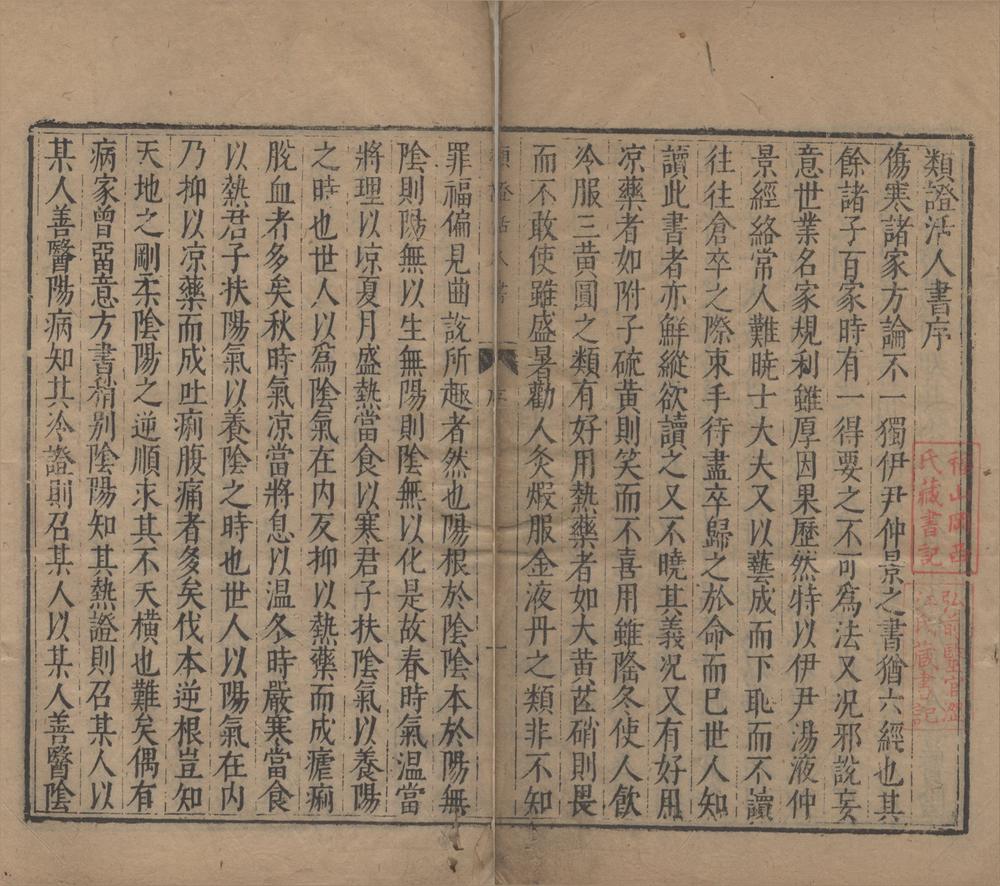 類證活人書序
傷寒諸家方論不一獨伊尹仲景之書猶六經也其
餘諸子百家時有一得要之不可為法又況邪說妄
意世業名家規利雖厚因果歷然特以伊尹湯液仲
景經絡常人難曉士大夫又以藝成而下恥而不讀
往往倉卒之際束手待盡卒歸之於命而已世人知
讀此書者亦鮮縱欲讀之又不曉其義況又有好用
凉藥者如附子硫黃則笑而不喜用雖隆冬使人飲
冷服三黃圓之類有好用熱藥者如大黃芒硝則畏
而不敢使雖盛暑勸人灸煆服金液丹之類非不知
類證活人書
序
一
罪福偏見曲說所趣者然也陽根於陰陰本於陽無
陰則陽無以生無陽則陰無以化是故春時氣温當
將理以凉夏月盛熱當食以寒君子扶陰氣以養陽
之時也世人以爲陰氣在内反抑以熱藥而成瘧痢
脫血者多矣秋時氣凉當將息以温冬時嚴寒當食
以熱君子扶陽氣以養陰之時也世人以陽氣在内
乃抑以凉藥而成吐痢腹痛者多矣伐本逆根豈知
天地之剛柔陰陽之逆順求其不夭橫也難矣偶有
病家曾留意方書稍别陰陽知其熱證則召某人以
某人善醫陽病知其冷證則召某人以某人善醫陰
氏藏書記
弘前醫官澀
江氏藏書記